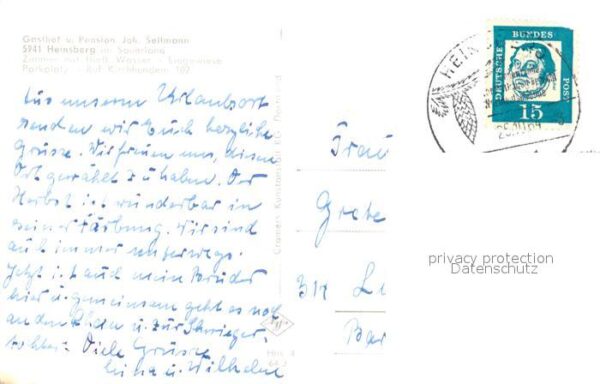 Gasthof u. Pension Joh. Sellmann
5941 Heinsberg im Sauerland
Zimmer mit fließ. Wasser - Liegewiese
Parkplatz - Ruf Kirchhundem 107
Aus unserem Urlaubsort
senden wir Euch herzliche
Grüsse. Wir freuen uns, diesen
Ort gewählt zu haben. Der
Herbst ist wunderbar in
seiner Färbung. Wir sind
auch immer unterwegs.
Jetzt ist auch mein Bruder
hier u. gemeinsam geht es noch
an den Rhein u. zur Schwieger-
tochter. Viele Grüsse
u. Wilhelm
Cramers Kunstanstalt KG,
HEIN
DEUTSCHE
BUNDES
POST
15
Frau
Grete
314 L
Ba
privacy protection
Datenschutz